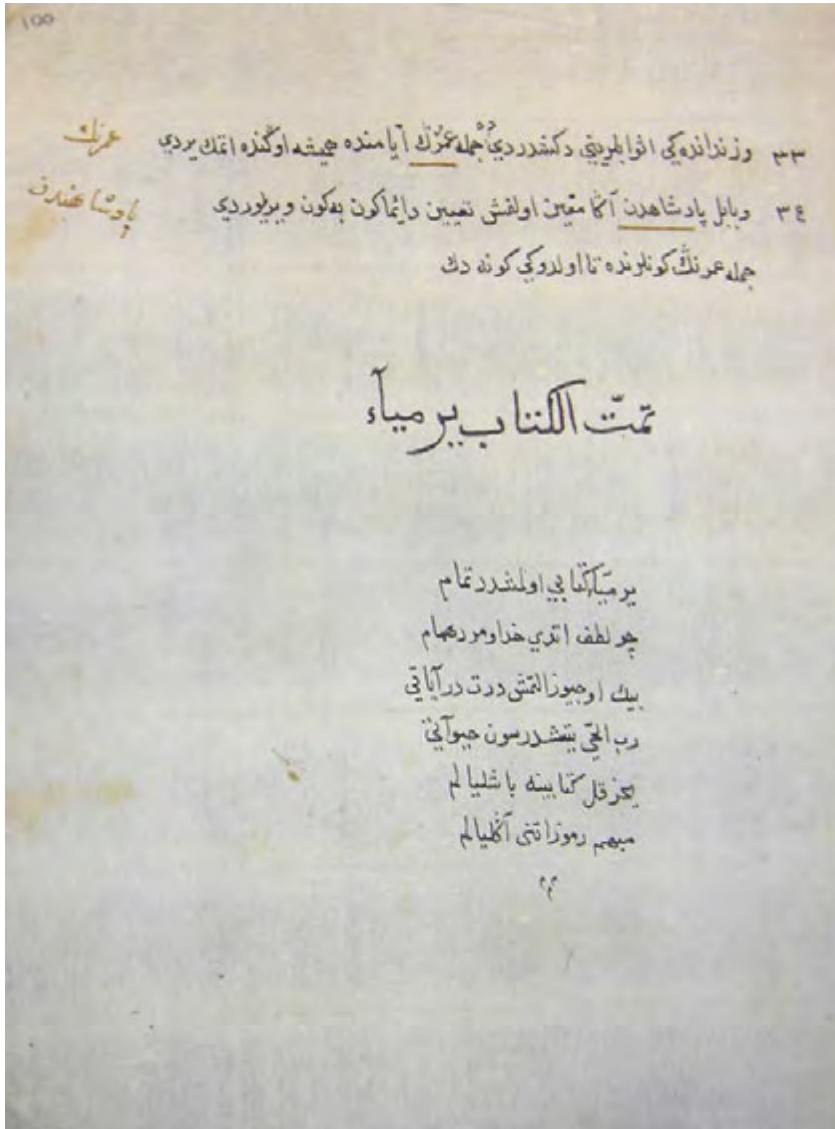 100
٣٣ وزندانده‌كي اثوابلريني دكشدردي جمله عمرنك آيامنده هميشه اوكنده اتمك يردي
عمرنك
٣٤ وبابل پادشاهدن آڭا معين اولنمش تعيين دائما كون بكون ويريلوردي
پادشاهندن
جمله عمرنڭ كونلرنده تا اولدوكي كونه دك
تمّت الكتاب يرمياء
يرمياء كتابي اولمشدر تمام
چو لطف اتدي خداوند همام
بيك اوچيوز التمش درت در آياتي
رب الحي يتشدرسون حيواتي
يحزقل كتابينه باشليالم
مبهم رموزاتنى آڭليالم
م م م